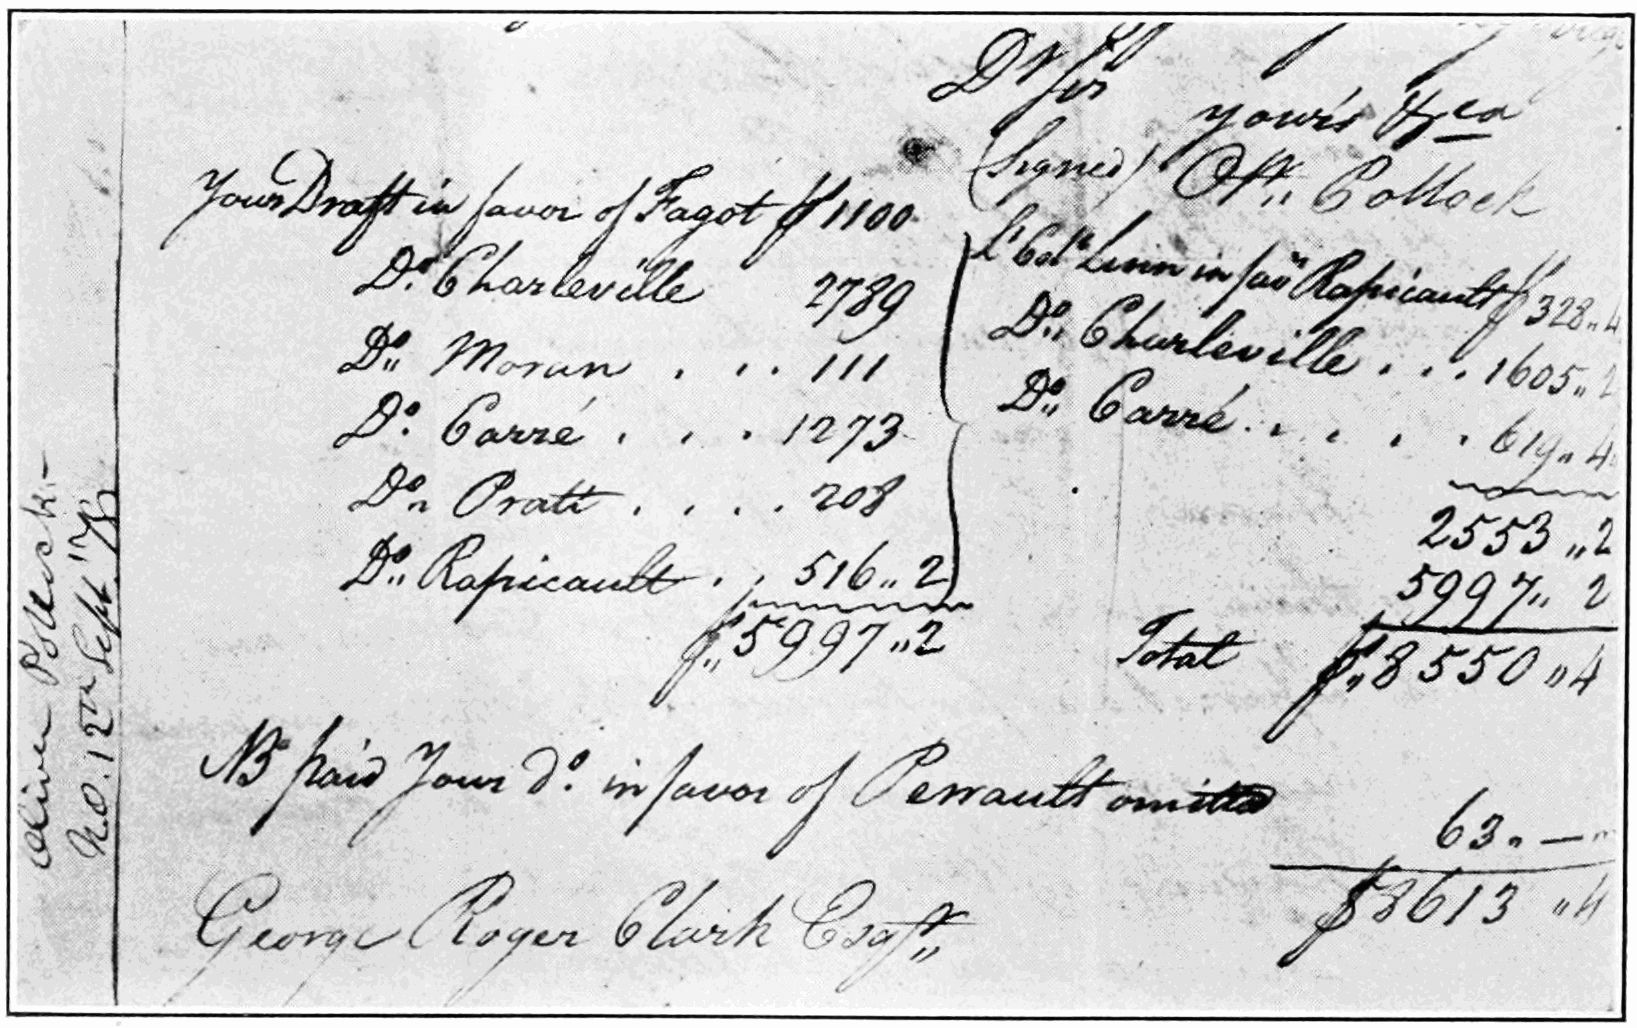 Dr Sir
Your's &ca
(Signed) Olr,, Pollock
Your Draft in favor of Fagot $ 1100
Do. Charleville 2789
Do,, Moran . . . 111
Do. Carré . . . 1273
Do,, Pratt . . . . 208
Do,, Rapicault . . 516,,2
$,,5997,,2
Lt Colo Linn in favr Rapicault $ 328,,4
Do,, Charleville . . . 1605,,2
Do,, Carré . . . . . 619,,4
2553,,2
5997,,2
Total $,,8550,,4
NB. paid Your do. in favor of Perrault omitted 63,, —
$8613,,4
George Roger Clark Esqr,,
Oliver Pollock —
N.O. 12th Sept. '78